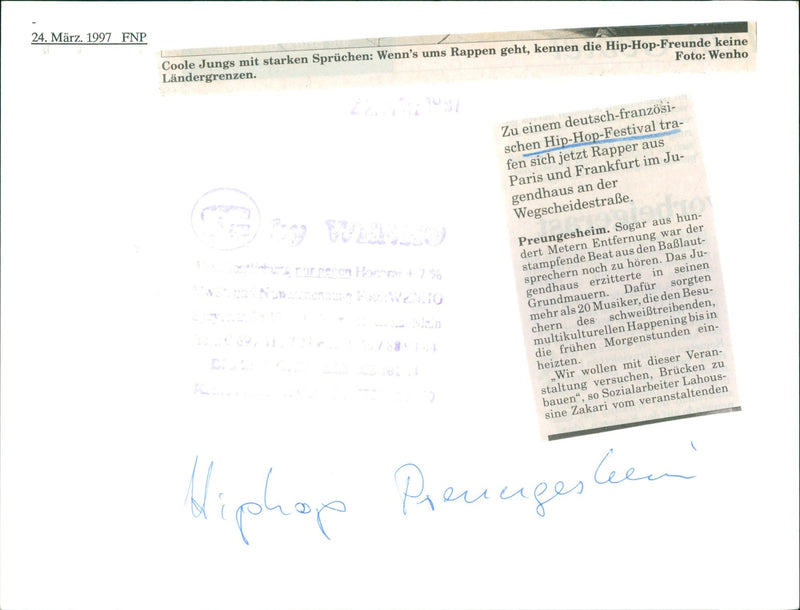 24. März. 1997 FNP
Coole Jungs mit starken Sprüchen: Wenn's ums Rappen geht, kennen die Hip-Hop-Freunde keine
Ländergrenzen. Foto: Wenho
Zu einem deutsch-französi-
schen Hip-Hop-Festival tra-
fen sich jetzt Rapper aus
Paris und Frankfurt im Ju-
gendhaus an der
Wegscheidestraße.
Preungesheim. Sogar aus hun-
dert Metern Entfernung war der
stampfende Beat aus den Baßlaut-
sprechern noch zu hören. Das Ju-
gendhaus erzitterte in seinen
Grundmauern. Dafür sorgten
mehr als 20 Musiker, die den Besu-
chern des schweißtreibenden,
multikulturellen Happening bis in
die frühen Morgenstunden ein-
heizten.
„Wir wollen mit dieser Veran-
staltung versuchen, Brücken zu
bauen", so Sozialarbeiter Lahous-
sine Zakari vom veranstaltenden
by WENHO
nur gegen Honorar + 7 %
Foto: WENHO
Main
Hiphop Preungesheim